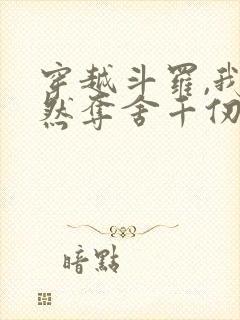 穿越斗羅,我
然奪舍千仞
暗點